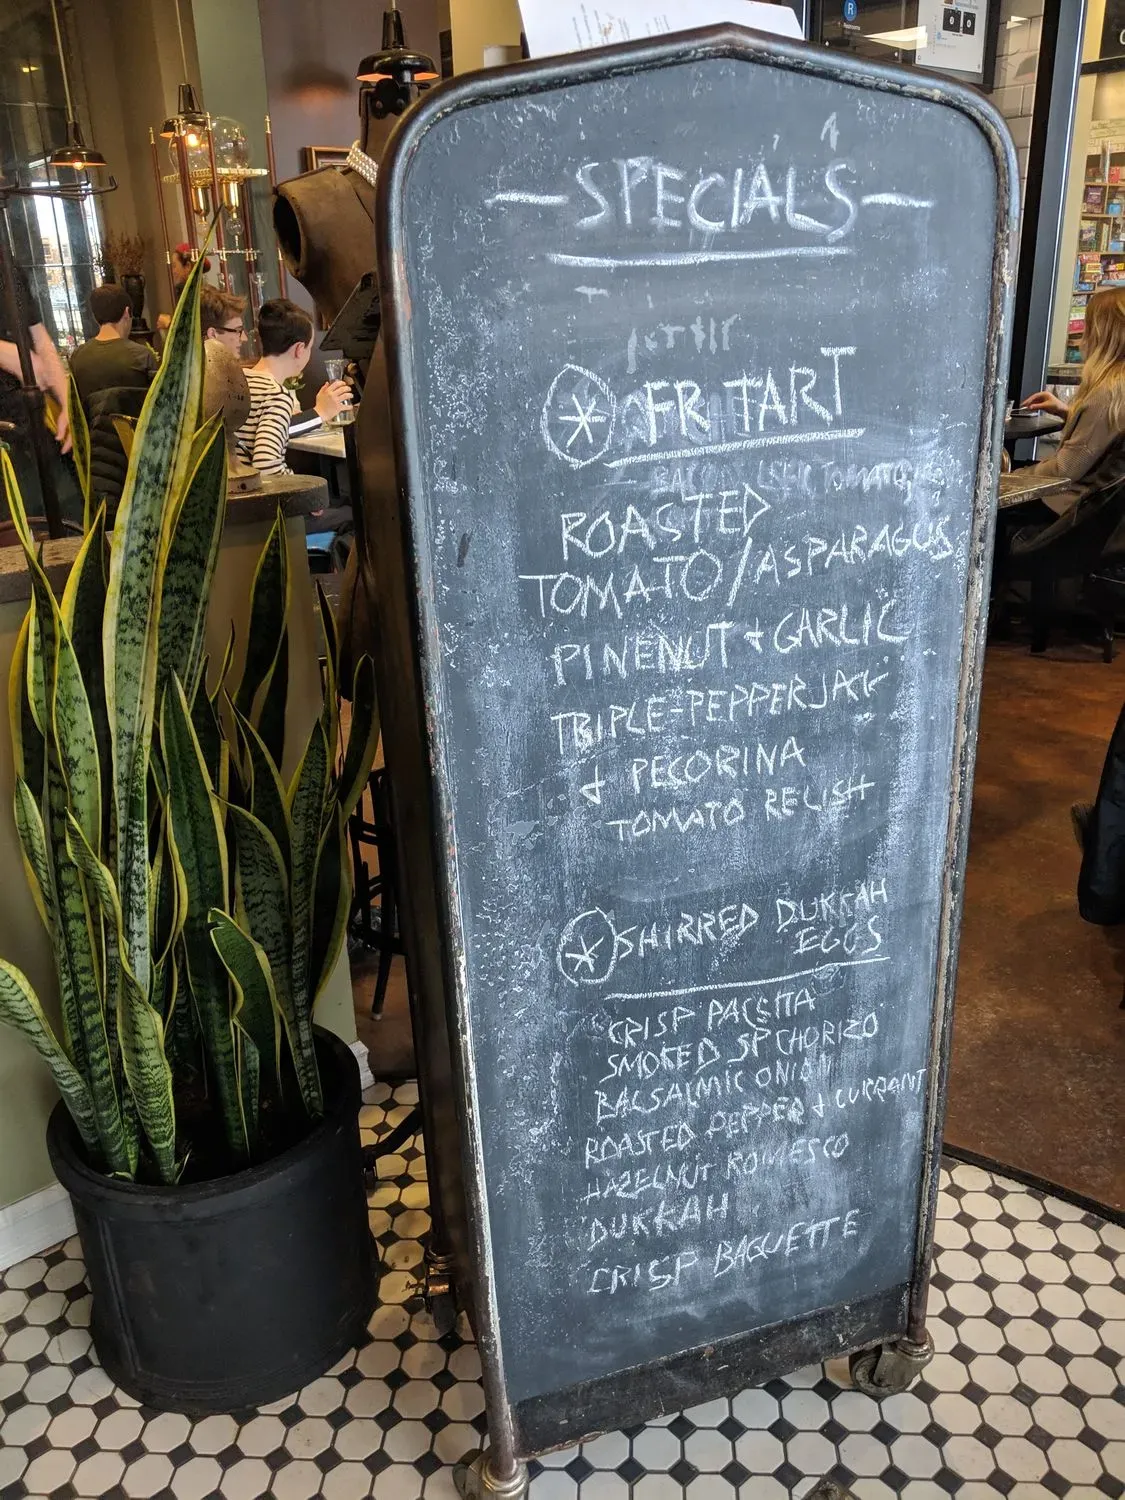 — SPECIALS —
FR TART
ROASTED
TOMATO/ASPARAGUS
PINENUT & GARLIC
TRIPLE-PEPPERJACK
& PECORINA
TOMATO RELISH
SHIRRED DUKKAH
EGGS
CRISP PACETTA
SMOKED SP CHORIZO
BALSALMIC ONION
ROASTED PEPPER & CURRANT
HAZELNUT ROMESCO
DUKKAH
CRISP BAGUETTE